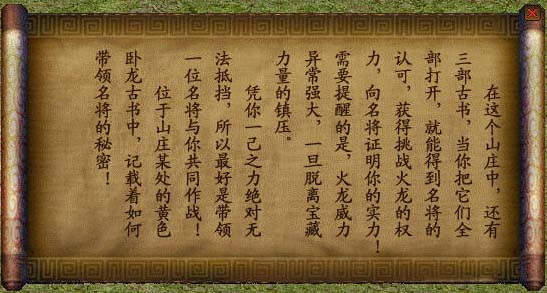 在这个山庄中，还有
三部古书，当你把它们全
部打开，就能得到名将的
认可，获得挑战火龙的权
力，向名将证明你的实力！
需要提醒的是，火龙威力
异常强大，一旦脱离宝藏
力量的镇压。
凭你一己之力绝对无
法抵挡，所以最好是带领
一位名将与你共同作战！
位于山庄某处的黄色
卧龙古书中，记载着如何
带领名将的秘密！